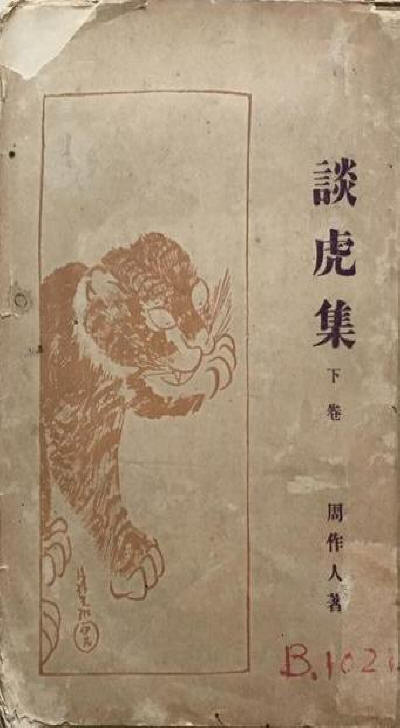 談虎集
下卷
周作人著
B.102